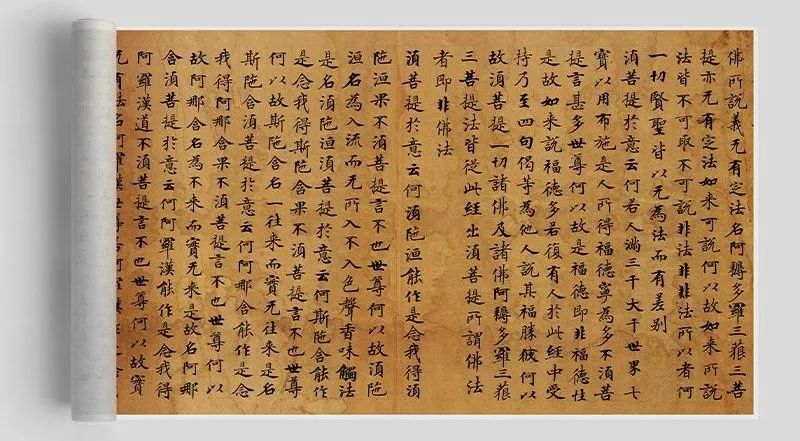 佛所說義无有定法名阿耨多羅三藐三菩
提亦无有定法如来可說何以故如来所說
法皆不可取不可說非法非非法所以者何
一切賢聖皆以无為法而有差别
湏菩提於意云何若人滿三千大千世界七
寶以用布施是人所得福德寧為多不湏菩
提言甚多世尊何以故是福德即非福德性
是故如来說福德多若復有人於此經中受
持乃至四句偈等為他人說其福勝彼何以
故湏菩提一切諸佛及諸佛阿耨多羅三藐
三菩提法皆從此經出湏菩提所謂佛法
者即非佛法
湏菩提於意云何湏陁洹能作是念我得湏
陁洹果不湏菩提言不也世尊何以故湏陁
洹名為入流而无所入不入色聲香味觸法
是名湏陁洹湏菩提於意云何斯陁含能作
是念我得斯陁含果不湏菩提言不也世尊
何以故斯陁含名一往来而實无往来是名
斯陁含湏菩提於意云何阿那含能作是念
我得阿那含果不湏菩提言不也世尊何以
故阿那含名為不来而實无来是故名阿那
含湏菩提於意云何阿羅漢能作是念我得
阿羅漢道不湏菩提言不也世尊何以故實